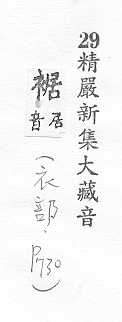 29精嚴新集大藏音
裾
居音
(衣部.P730)